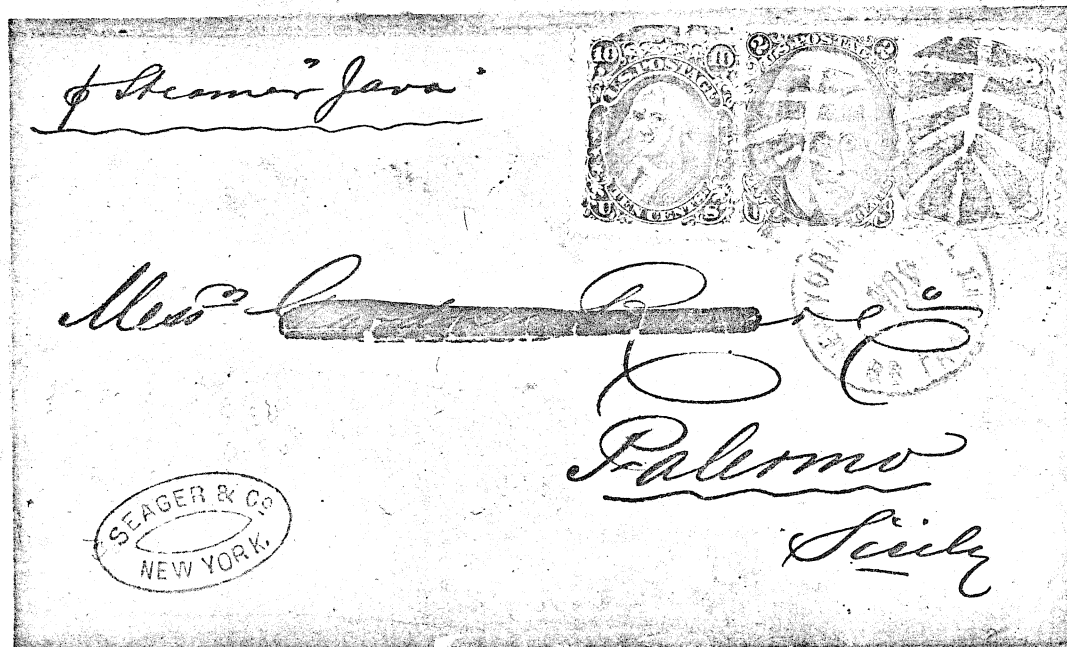 p Steamer "Java"
10 10
U.S. POSTAGE
TEN CENTS
U S
2 2
U.S. POSTAGE
U S
NEW YORK
BR PKT
Messrs
Palermo
Sicily
SEAGER & Co
NEW YORK.